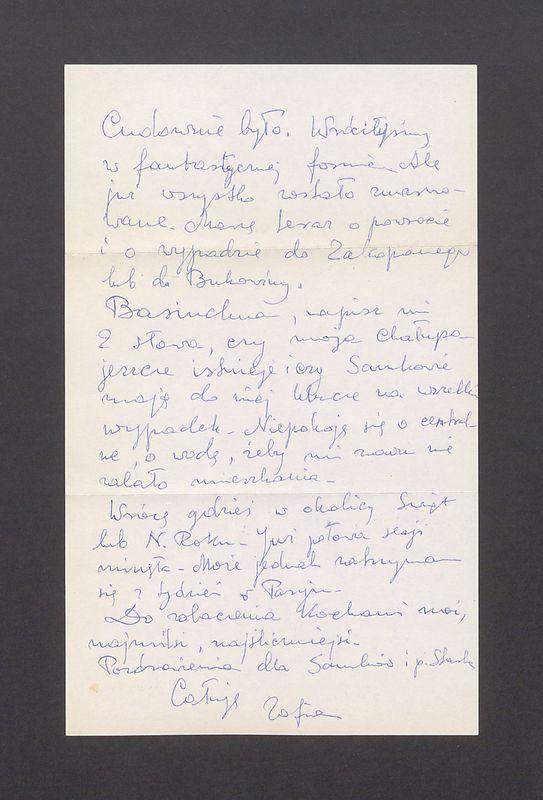 Cudownie było. Wróciłyśmy
w fantastycznej formie. Ale
już wszystko zostało zmarno-
wane. Marzę teraz o powrocie
i o wypadzie do Zakopanego
lub do Bukowiny.
Basiuchna, napisz mi
2 słowa, czy moja chałupa
jeszcze istnieje i czy Samkowie
mają do niej klucze na wszelki
wypadek. Niepokoję się o central-
ne, o wodę, żeby mi znowu nie
zalało mieszkania.
Wrócę gdzieś w okolicy Świąt
lub N. Roku. Już połowa sesji
minęła. Może jednak zatrzymam
się z tydzień w Paryżu.
Do zobaczenia Kochani moi,
najmilsi, najśliczniejsi.
Pozdrowienia dla Samków i p. Stasi
Całuję Zofia